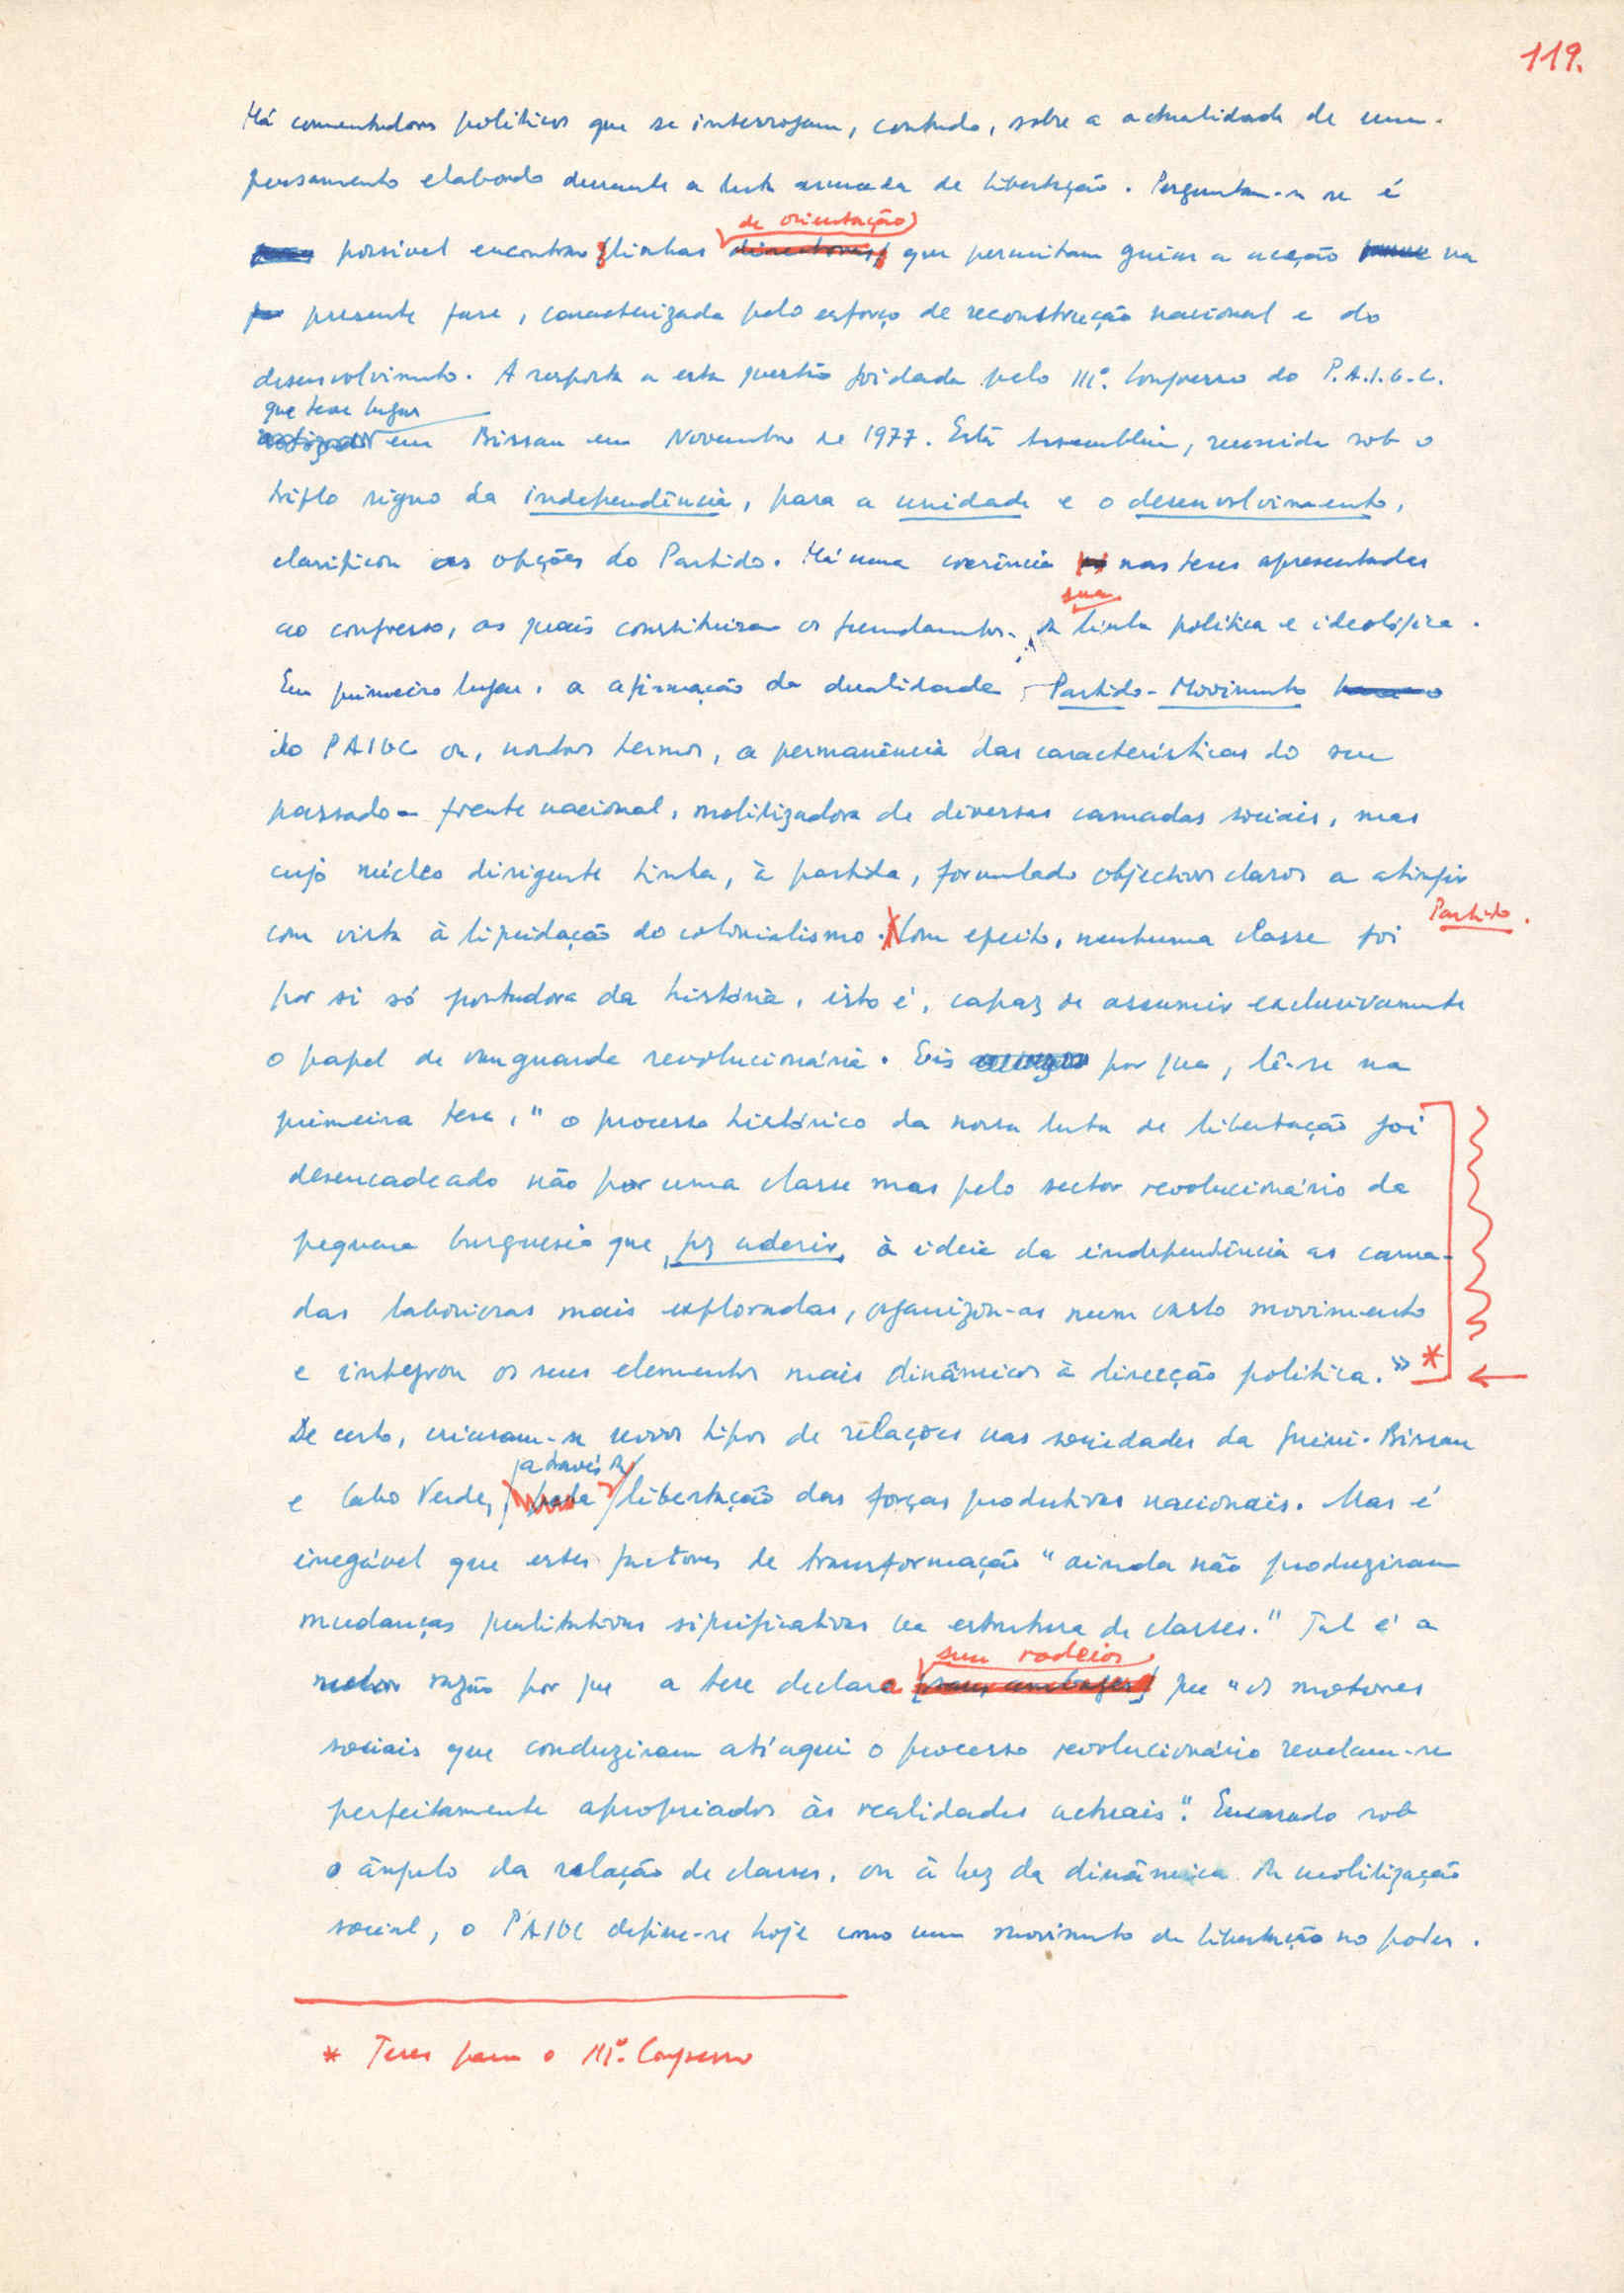 119.
Há comentadores políticos que se interrogam, contudo, sobre a actualidade de um
pensamento elaborado durante a luta armada de libertação. Perguntam-se se é
de orientação
possível encontrar linhas directoras, que permitam guiar a acção na
presente fase, caracterizada pelo esforço de reconstrução nacional e do
desenvolvimento. A resposta a esta questão foi dada pelo IIIº. Congresso do P.A.I.G.C.
que teve lugar
em Bissau em Novembro de 1977. Esta Assembleia, reunida sob o
triplo signo da independência, para a unidade e o desenvolvimento,
clarificou as opções do Partido. Há uma coerência nas teses apresentadas
sua
ao congresso, as quais constituiram os fundamentos da linha política e ideológica.
Em primeiro lugar, a afirmação da dualidade Partido-Movimento
do PAIGC ou, noutros termos, a permanência das características do seu
passado - frente nacional, mobilizadora de diversas camadas sociais, mas
cujo núcleo dirigente tinha, à partida, formulado objectivos claros a atingir
Partido.
com vista à liquidação do colonialismo. Com efeito, nenhuma classe foi
por si só portadora da história, isto é, capaz de assumir exclusivamente
o papel de vanguarda revolucionária. Eis por que, lê-se na
primeira tese, "o processo histórico da nossa luta de libertação foi
desencadeado não por uma classe mas pelo sector revolucionário da
pequena burguesia que fez aderir à ideia da independência as cama-
das laboriosas mais exploradas, organizou-as num vasto movimento
e integrou os seus elementos mais dinâmicos à direcção política." *
De certo, criaram-se novos tipos de relações nas sociedades da Guiné-Bissau
através da
e Cabo Verde, pela libertação das forças produtivas nacionais. Mas é
inegável que estes factores de transformação "ainda não produziram
mudanças qualitativas significativas na estrutura de classes." Tal é a
sem rodeios
razão por que a tese declara sem ambages que "os motores
sociais que conduziram até aqui o processo revolucionário revelam-se
perfeitamente apropriados às realidades actuais". Encarado sob
o ângulo da relação de classes, ou à luz da dinâmica da mobilização
social, o PAIGC define-se hoje como um movimento de libertação no poder.
* Teses para o IIIº. Congresso